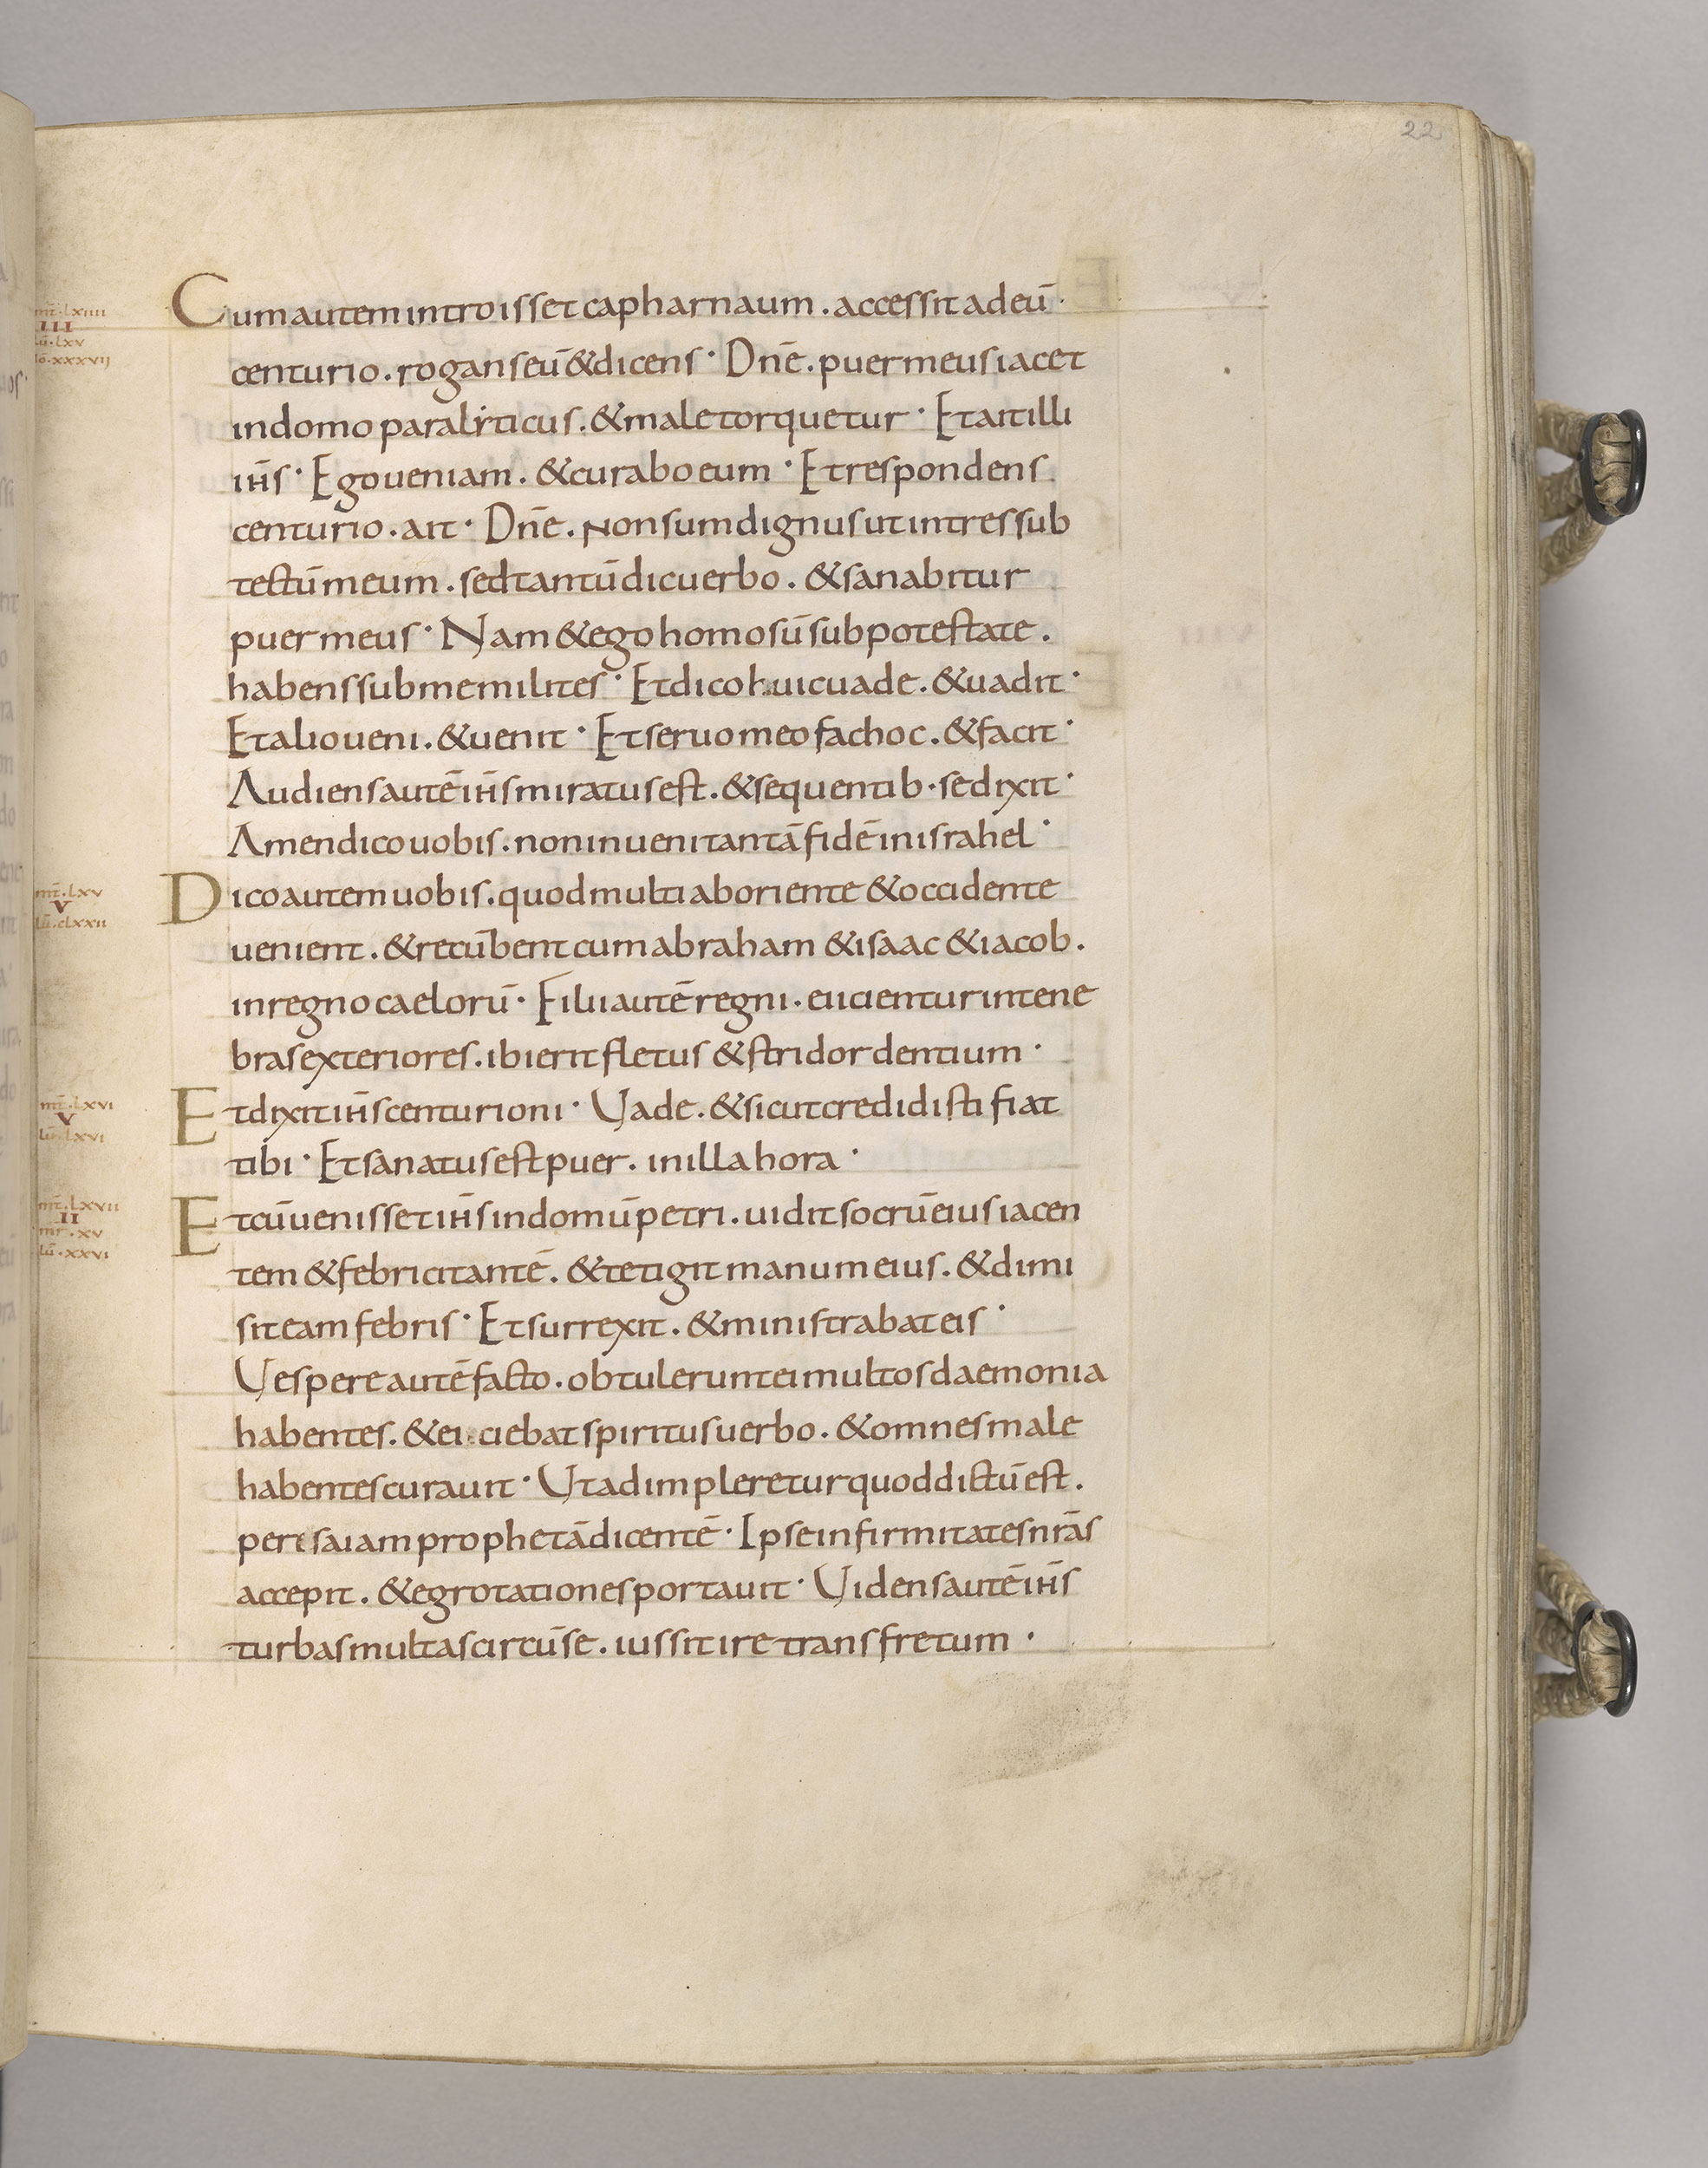 22
mt̄·lxiiii
III
lū·lxv
iō·xxxvij
Cum autem introisset capharnaum. accessit ad eū·
centurio. rogans eū & dicens· Dn̄e. puer meus iacet
in domo paralyticus. & male torquetur· Et ait illi
ih̄s· Ego ueniam. & curabo eum· Et respondens
centurio. ait· Dn̄e. non sum dignus ut intres sub
tectū meum. sed tantū dic uerbo. & sanabitur
puer meus· Nam & ego homo sū sub potestate.
habens sub me milites· Et dico huic uade. & uadit·
Et alio ueni. & uenit· Et seruo meo fac hoc. & facit·
Audiens autē ih̄s miratus est. & sequentib· se dixit·
Amen dico uobis. non inueni tantā fidē in israhel·
mt̄·lxv
V
lū·clxxii
Dico autem uobis. quod multi ab oriente & occidente
uenient. & recūbent cum abraham & isaac & iacob.
in regno caelorū· Filii autē regni. eiicientur in tene
bras exteriores. ibi erit fletus & stridor dentium·
mt̄·lxvi
V
lū·lxvi
Et dixit ih̄s centurioni· Uade. & sicut credidisti fiat
tibi· Et sanatus est puer. in illa hora·
mt̄·lxvii
II
mr̄·xv
lū·xxvi
Et cū uenisset ih̄s in domū petri. uidit socrū eius iacen
tem & febricitantē. & tetigit manum eius. & dimi
sit eam febris· Et surrexit. & ministrabat eis·
Uespere autē facto. obtulerunt ei multos daemonia
habentes. & eiciebat spiritus uerbo. & omnes male
habentes curauit· Ut adimpleretur quod dictū est.
per esaiam prophetā dicentē· Ipse infirmitates nr̄as
accepit. & egrotationes portauit· Uidens autē ih̄s
turbas multas circū se. iussit ire trans fretum·